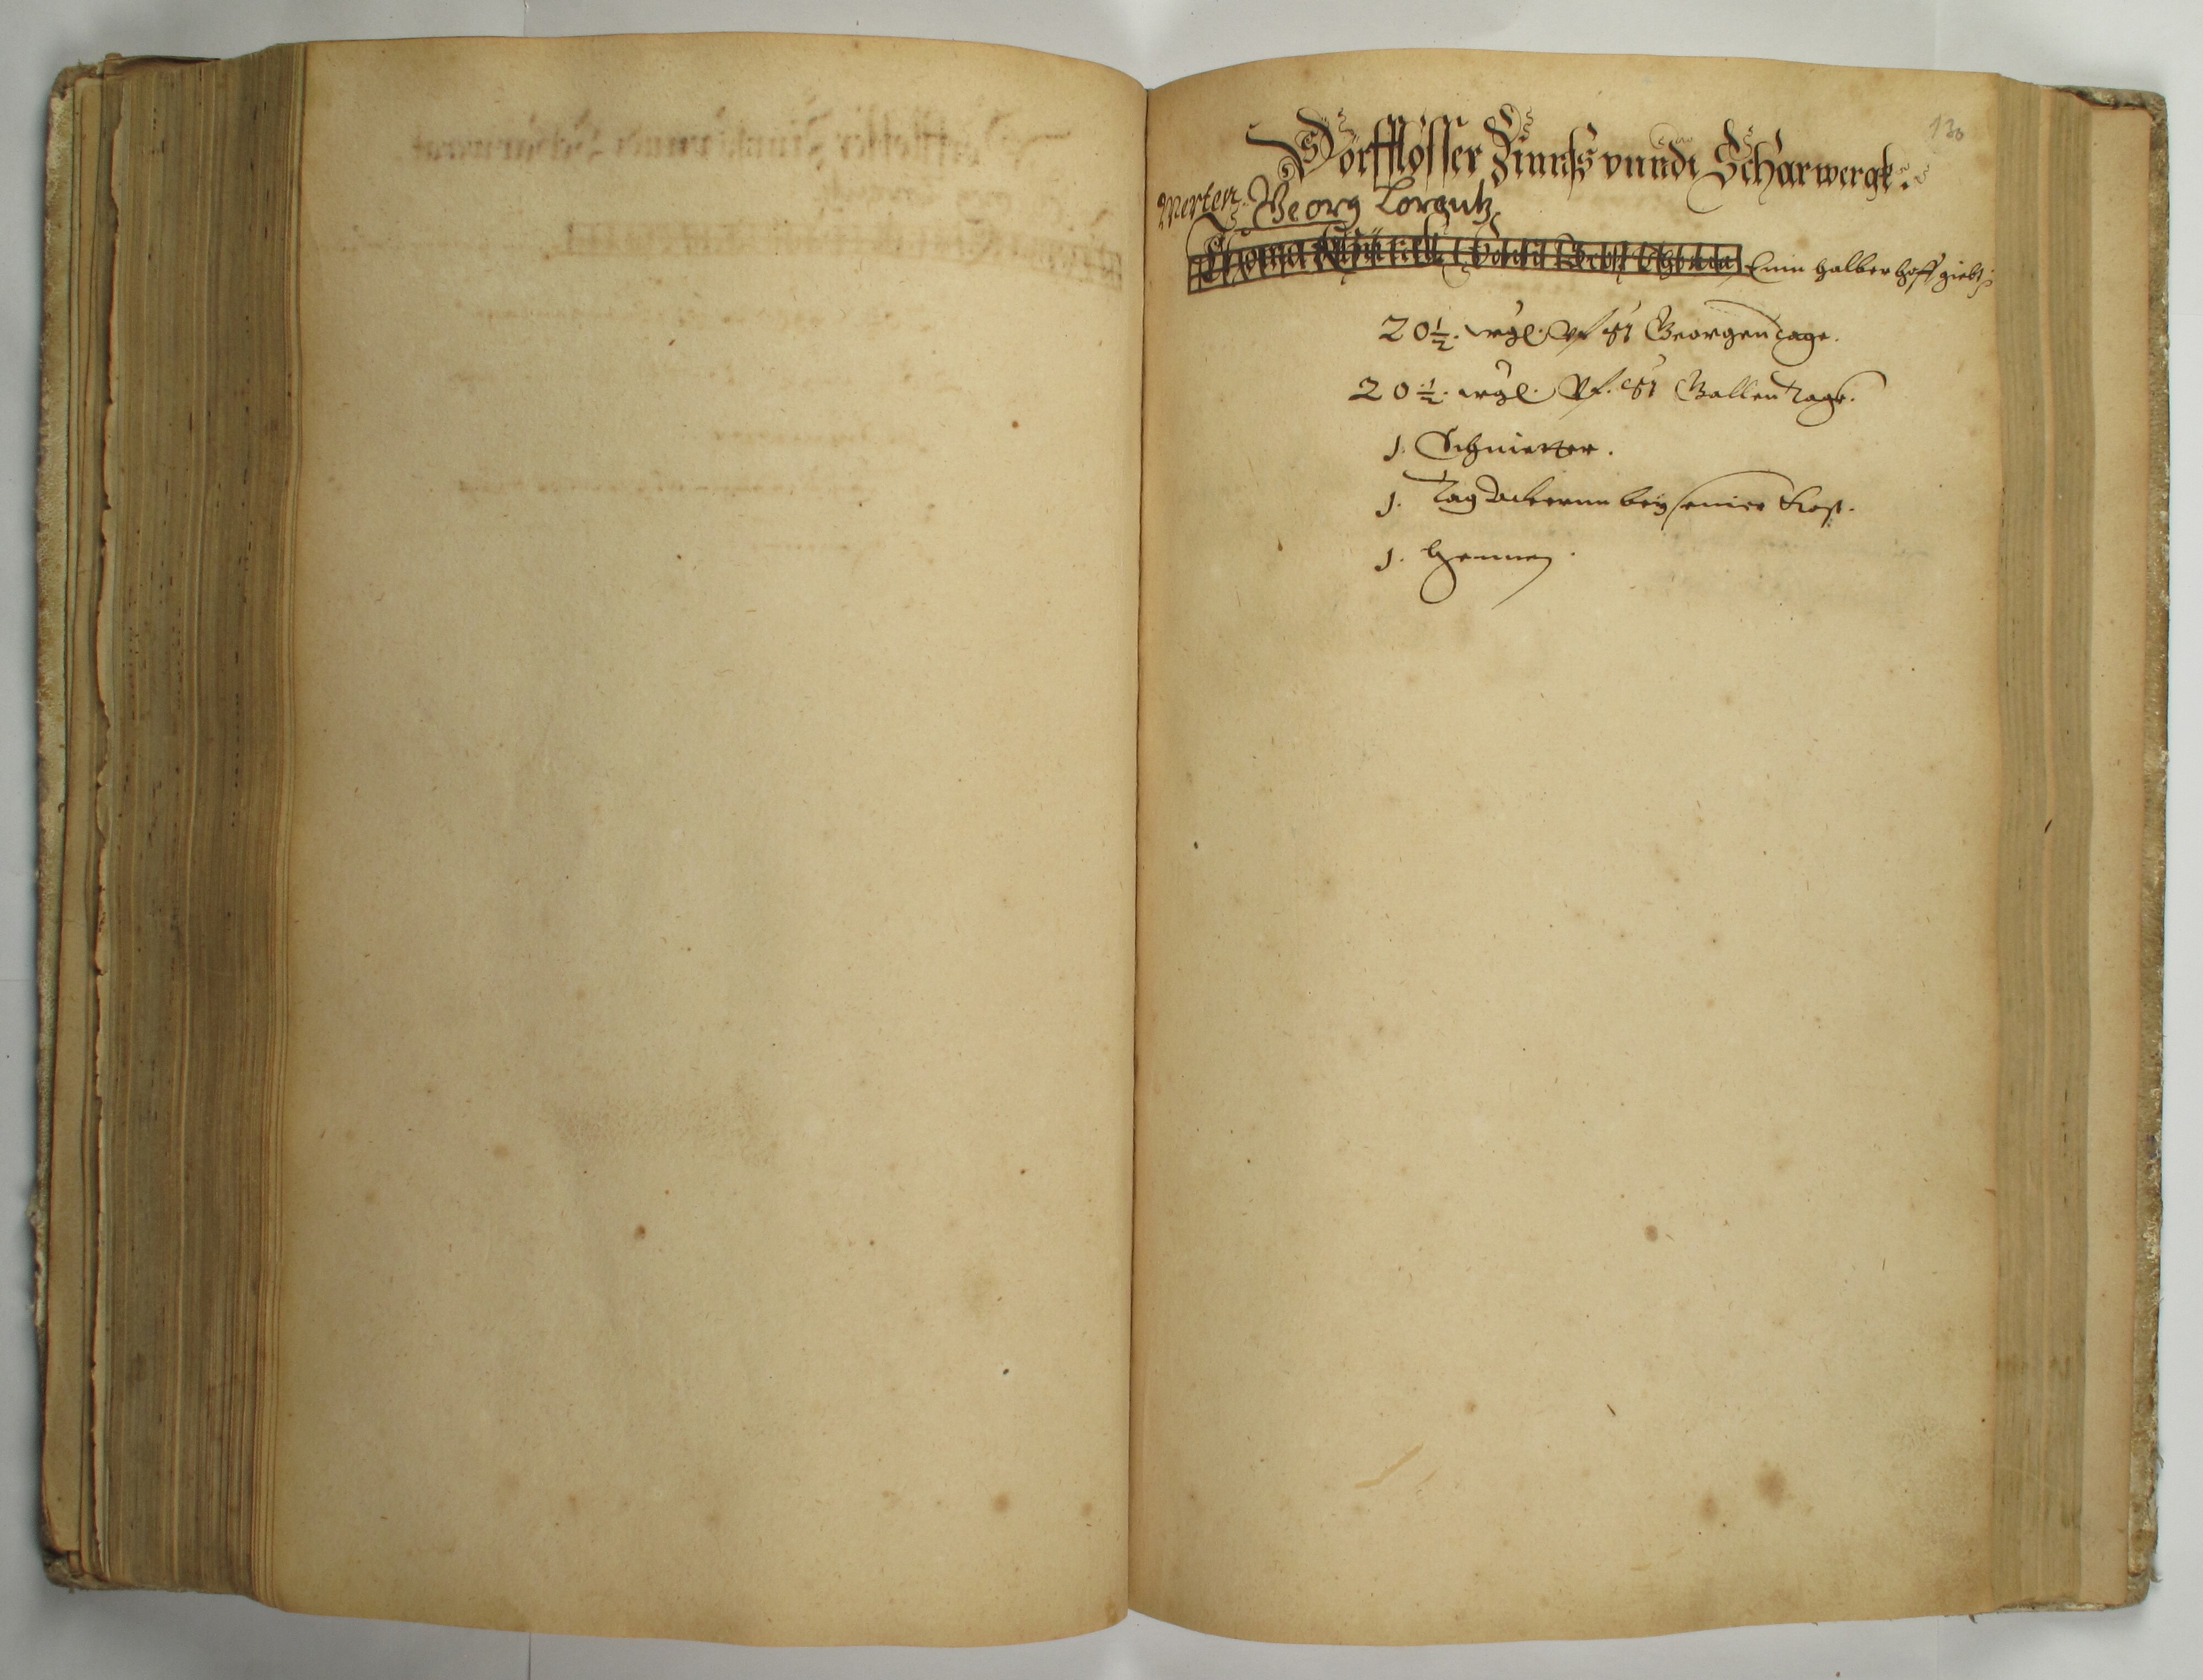 130
Dörfflösser Zinnß vnndt Scharwergk.
Merten Georg Lorentz
Thoma Einn halber hoff giebt,
20½. wgl. Vf St Georgen Tage.
20½. wgl. Vf. St Gallen Tage.
1. Schnietter.
1. Tag Ackernn bey seiner Kost.
1. Hennen.